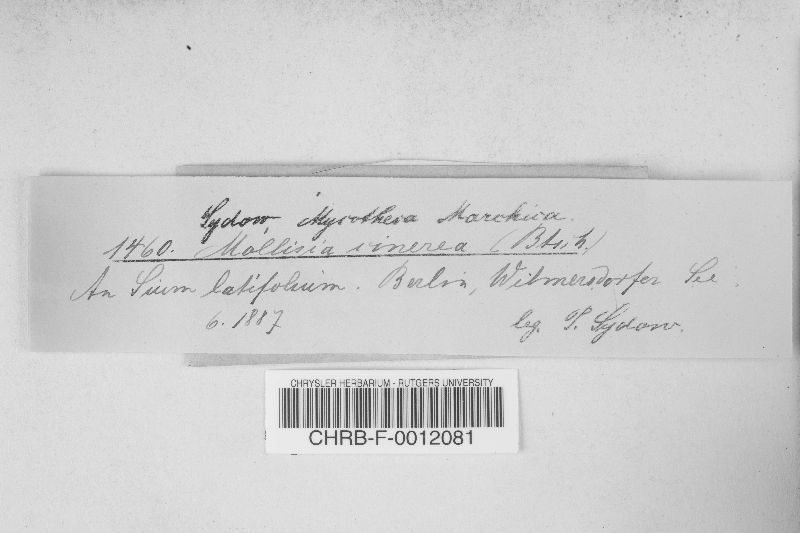 Sydow, Mycotheca Marchica.
1460. Mollisia cinerea (Btsch.)
An Sium latifolium. Berlin, Wilmersdorfer See.
6. 1887 leg. P. Sydow.
CHRYSLER HERBARIUM - RUTGERS UNIVERSITY
CHRB-F-0012081